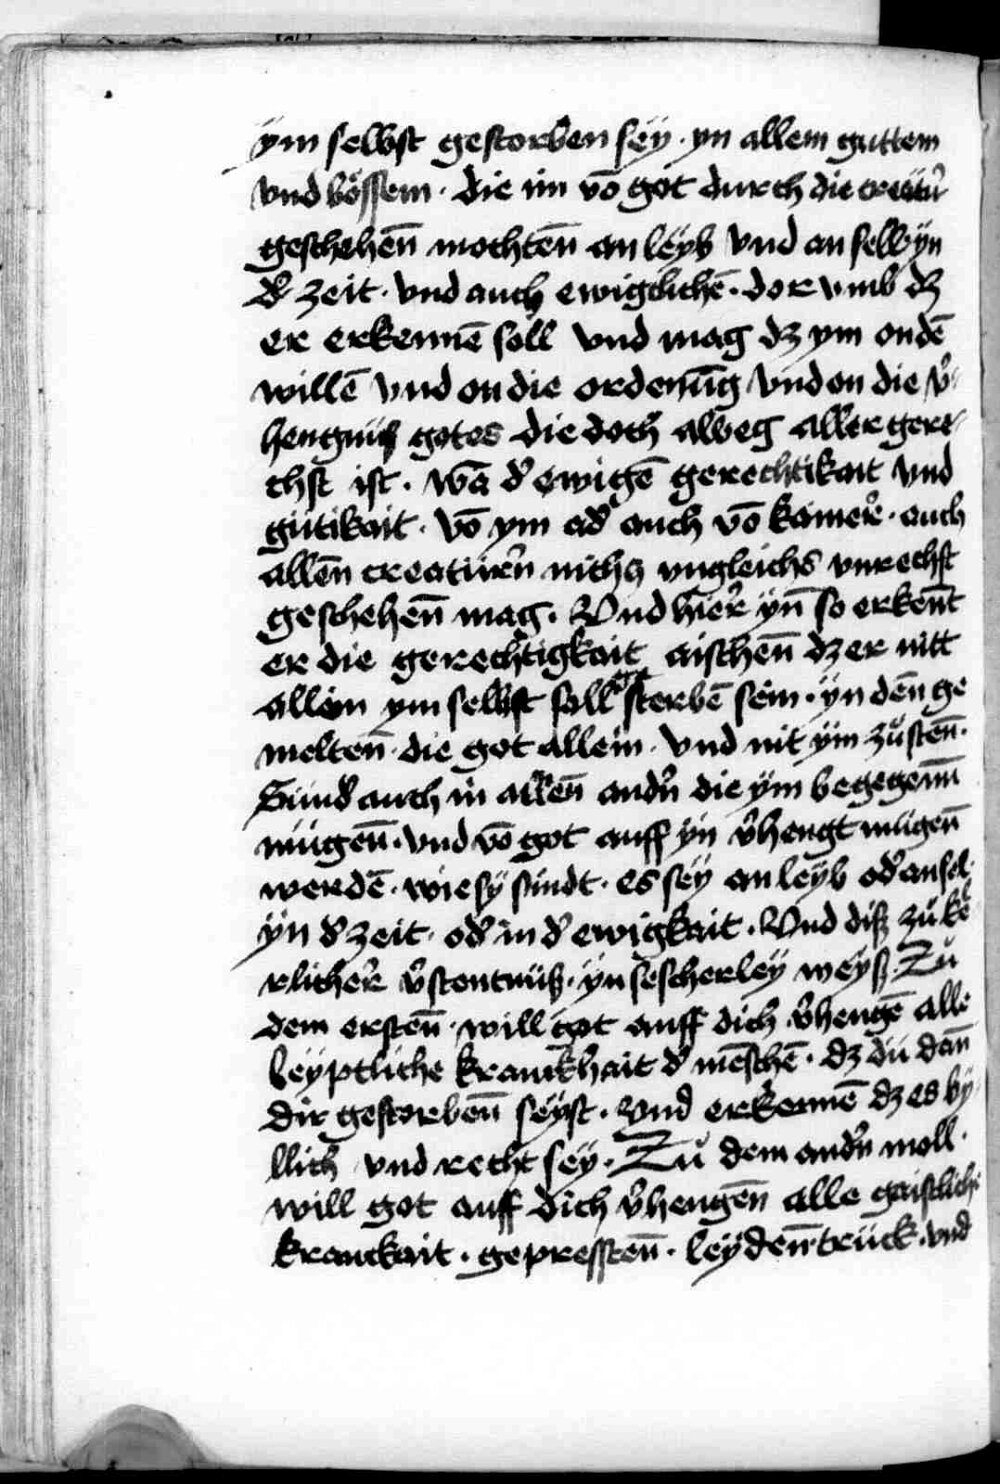 ym selbst gestorben sey · yn allem guttem
vnd bössem · die im vō got durch die creatur̄
geschehen̄ mochten̄ an leyb vnd an sel · yn
d' zeit · vnd auch ewigclichē · dor vmb dz
er erkennē soll vnd mag dz ym on dē
willē vnd on die ordenūg vnd on die v'
hengnuß gotes die doch alweg aller gere
chst ist · wā d' ewigē gerechtikait vnd
gütikait · vō ym ad' auch vō kainer · auch
allen̄ creaturn̄ nichz vngleichs vnrechst
geschehen̄ mag · Vnd hier yn̄ so erkent̄
er die gerechtigkait aischen̄ dz er nitt
allein ym selbst soll gestorbē sein · yn den̄ ge
melten̄ · die got allein · vnd nit ym zů sten̄ ·
Sünd' auch in allen̄ andn̄ die ym begegenn̄
mügen̄ · vnd vō got auff yn v'hengt mügen̄
werdē · wie sy sindt · es sey an leyb od' an sel
yn d' zeit · od' in d' ewigkait · Vnd diß zů kē
rlicher v'stentnüß · yn sescherley weyß · Zů
dem ersten̄ · will got auff dich v'hengē alle
leyptliche kranckhait d' mēschē · dz dü dan̄
dir gestorben̄ seyst · Vnd erkennē dz es by
llich vnd recht sey · Zů dem andn̄ moll ·
will got auff dich v'hengen̄ alle gaistliche
kranckait · gepressten̄ · leyden̄ trück · vnd